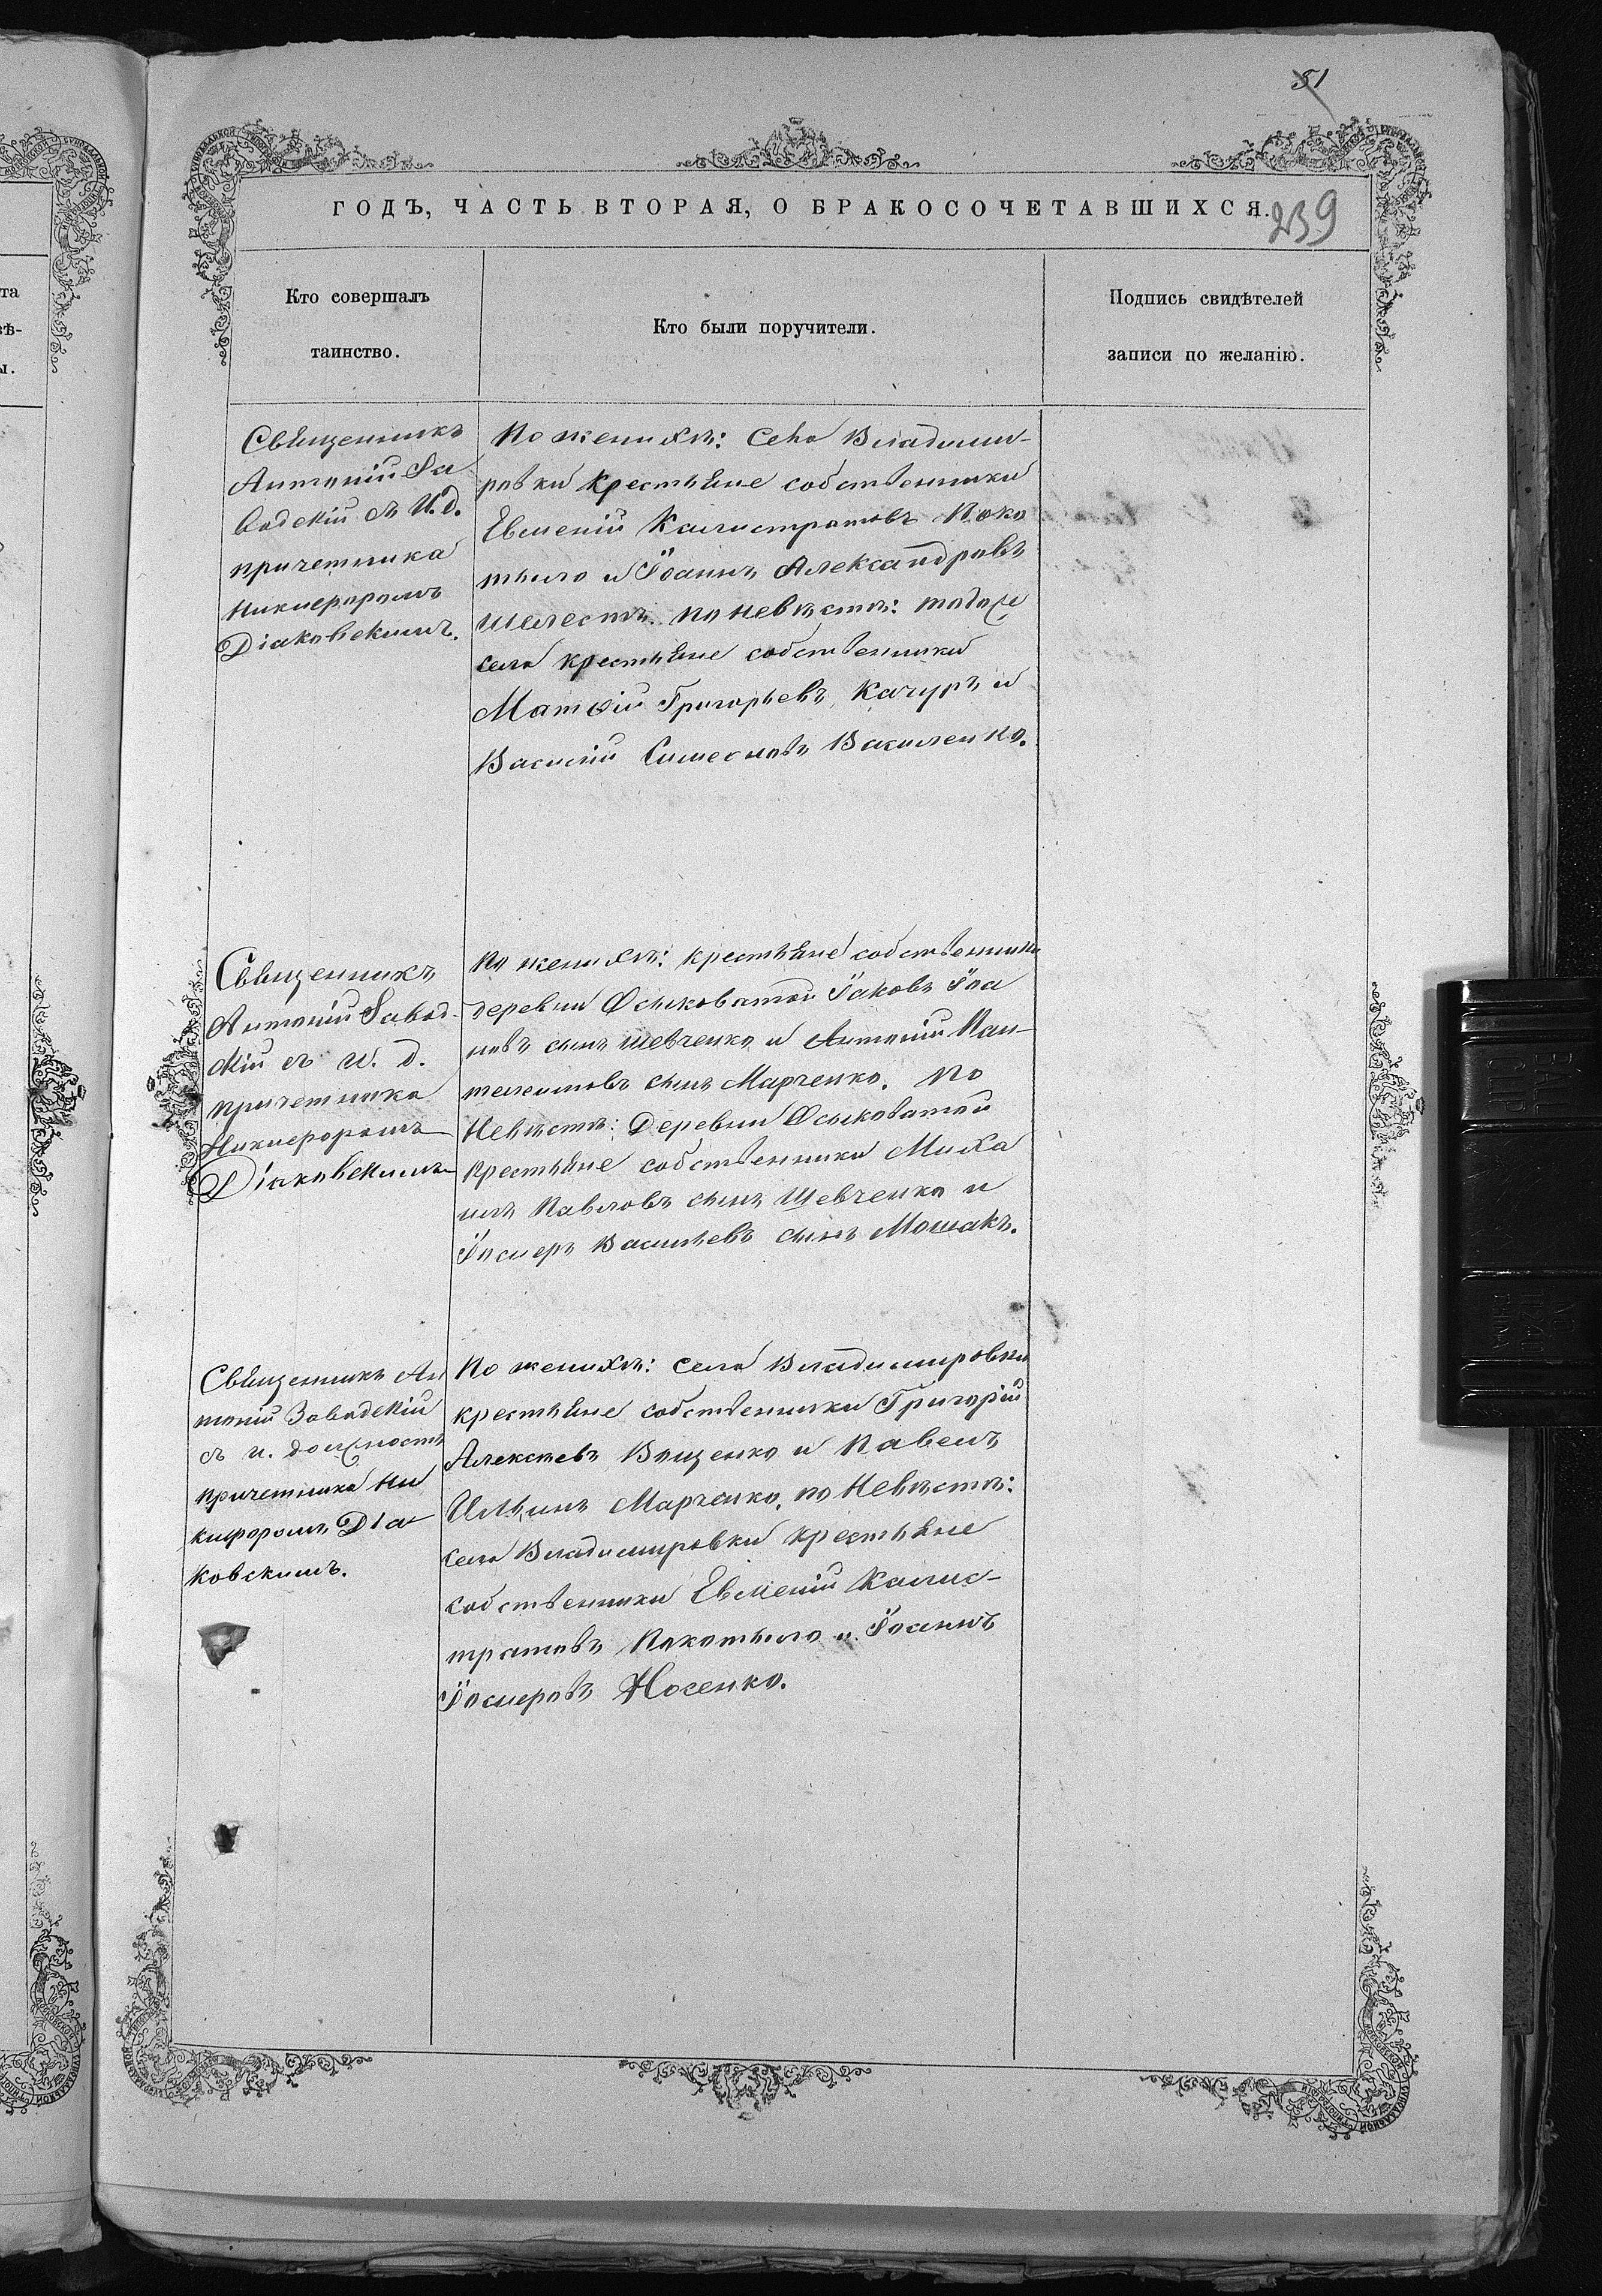 51
ГОДЪ, ЧАСТЬ ВТОРАЯ, О БРАКОСОЧЕТАВШИХСЯ.
239
Кто совершалъ
таинство.
Кто были поручители.
Подпись свидѣтелей
записи по желанію.
Священникъ
Антоній За
водскій съ И. д.
причетника
Никифоромъ
Діаковскимъ.
По женихѣ: Села Владими-
ровки Крестьяне собственники
Евменій Калистратовъ Поко
тыло и Іоаннъ Александровъ
Шелестъ. по невѣстѣ: тогоже
села крестьяне собственники
Матѳій Григорьевъ Качуръ и
Василій Симеоновъ Василенко.
Священникъ
Антоній Завод-
скій съ И. д.
причетника
Никифоромъ
Діаковскимъ
По женихѣ: крестьяне собственники
деревни Осиковатой Іаковъ Іоа
новъ сынъ Шевченко и Антоній Пан-
телимовъ сынъ Марченко. По
Невѣстѣ: Деревни Осиковатой
крестьяне собственники Миха
илъ Павловъ сынъ Шевченко и
Іосифъ Васильевъ сынъ Мошакъ.
Священникъ Ан
тоній Заводскій
съ и. должность
причетника Ни
кифоромъ Діа
ковскимъ.
По женихѣ: села Владимировки
крестьяне собственники Григорій
Алексѣевъ Ващенко и Павелъ
Ильинъ Марченко, по Невѣстѣ:
села Владимировки крестьяне
собственники Евменій Калис-
тратовъ Покотыло и Іоаннъ
Іосифовъ Носенко.